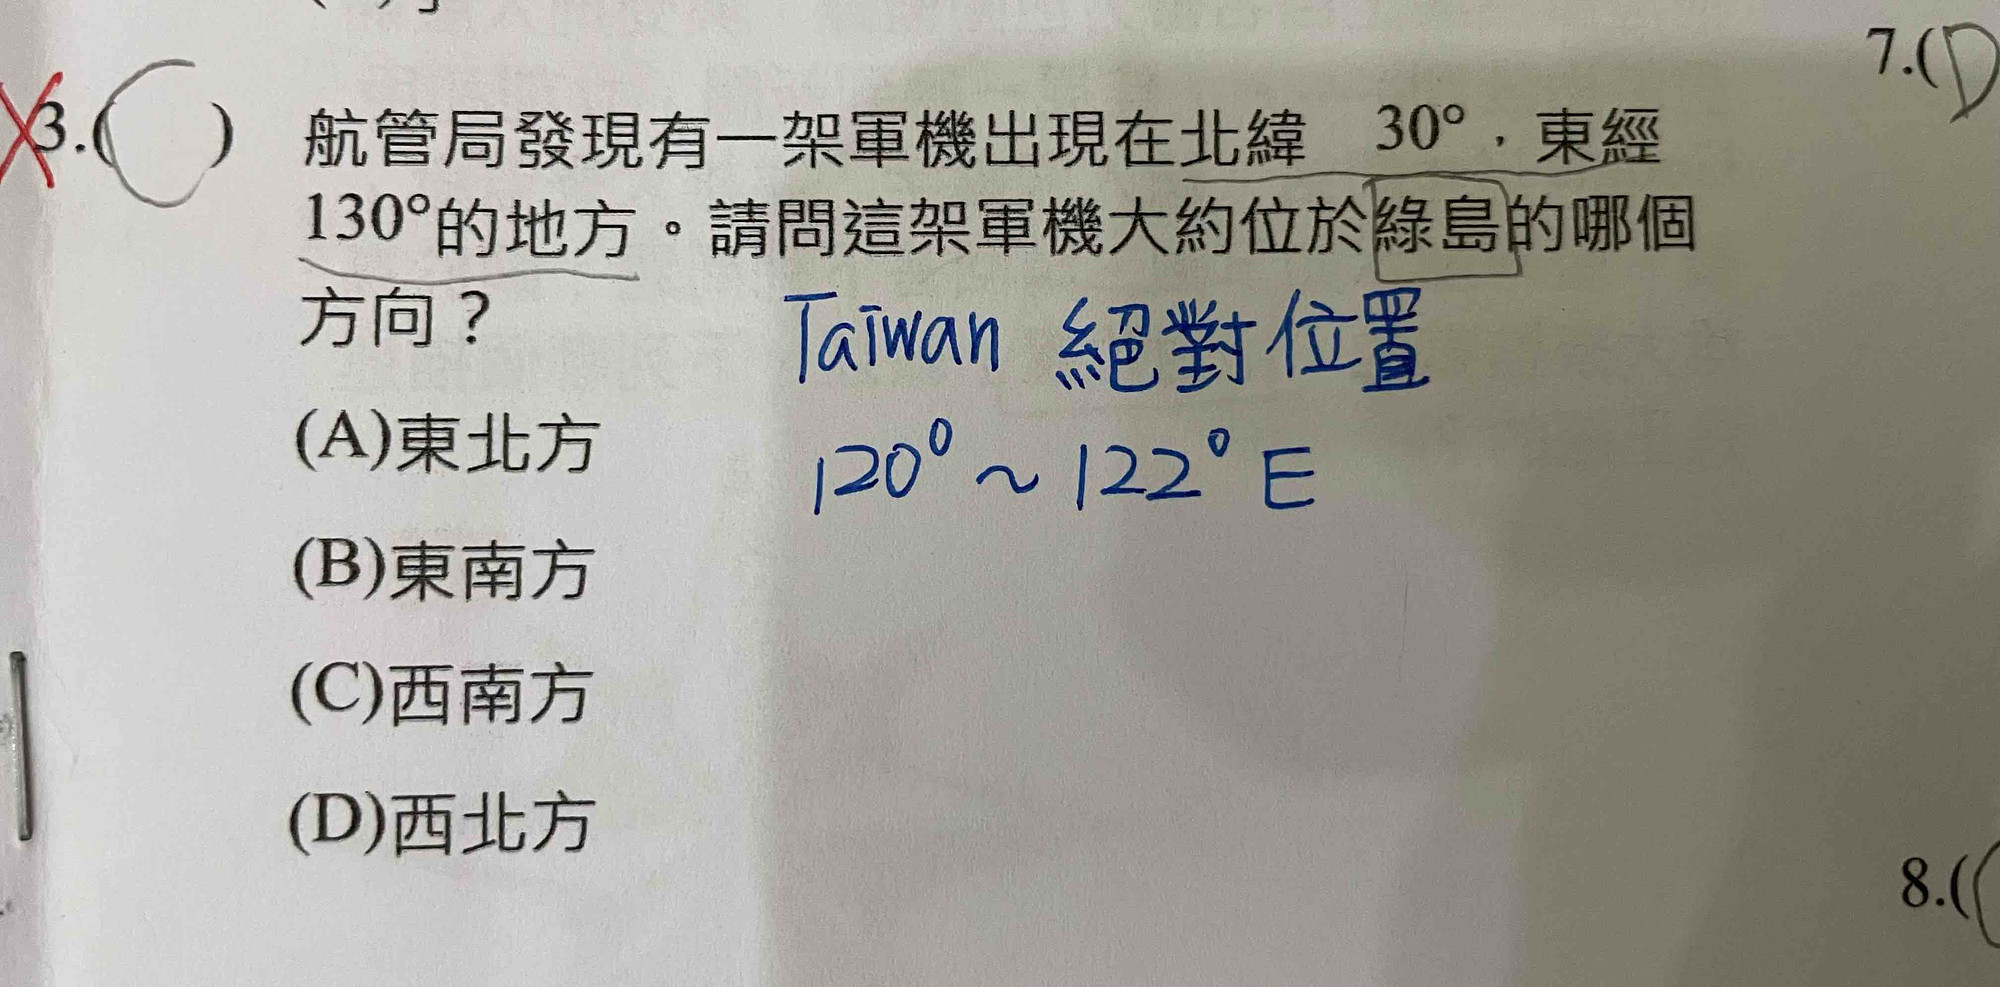 3.(C) 航管局發現有一架軍機出現在北緯 30°，東經
130°的地方。請問這架軍機大約位於綠島的哪個
方向？
Taiwan 絕對位置
120° ~ 122° E
(A)東北方
(B)東南方
(C)西南方
(D)西北方
7.(D
8.(